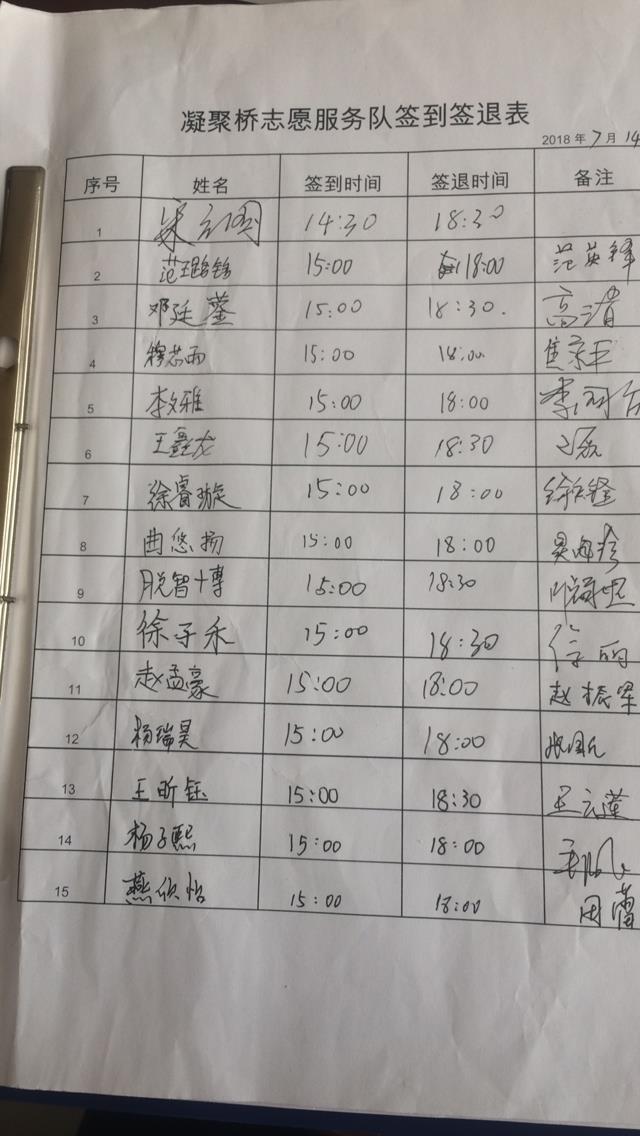 凝聚桥志愿服务队签到签退表
2018 年 7 月 14
序号 姓名 签到时间 签退时间 备注
1 14:30 18:30
2 15:00 18:00 范英锋
3 邓廷蓥 15:00 18:30. 高清
4 穆芯雨 15:00 18:00
5 李文雅 15:00 18:00
6 王鑫龙 15:00 18:30
7 徐睿璇 15:00 18:00
8 曲悠扬 15:00 18:00
9 脱智博 15:00 18:30
10 徐子永 15:00 18:30 徐丽
11 赵孟豪 15:00 18:00 赵振军
12 杨瑞昊 15:00 18:00
13 王昕钰 15:00 18:30 王云莲
14 杨子熙 15:00 18:00
15 燕欣怡 15:00 18:00 田蕾